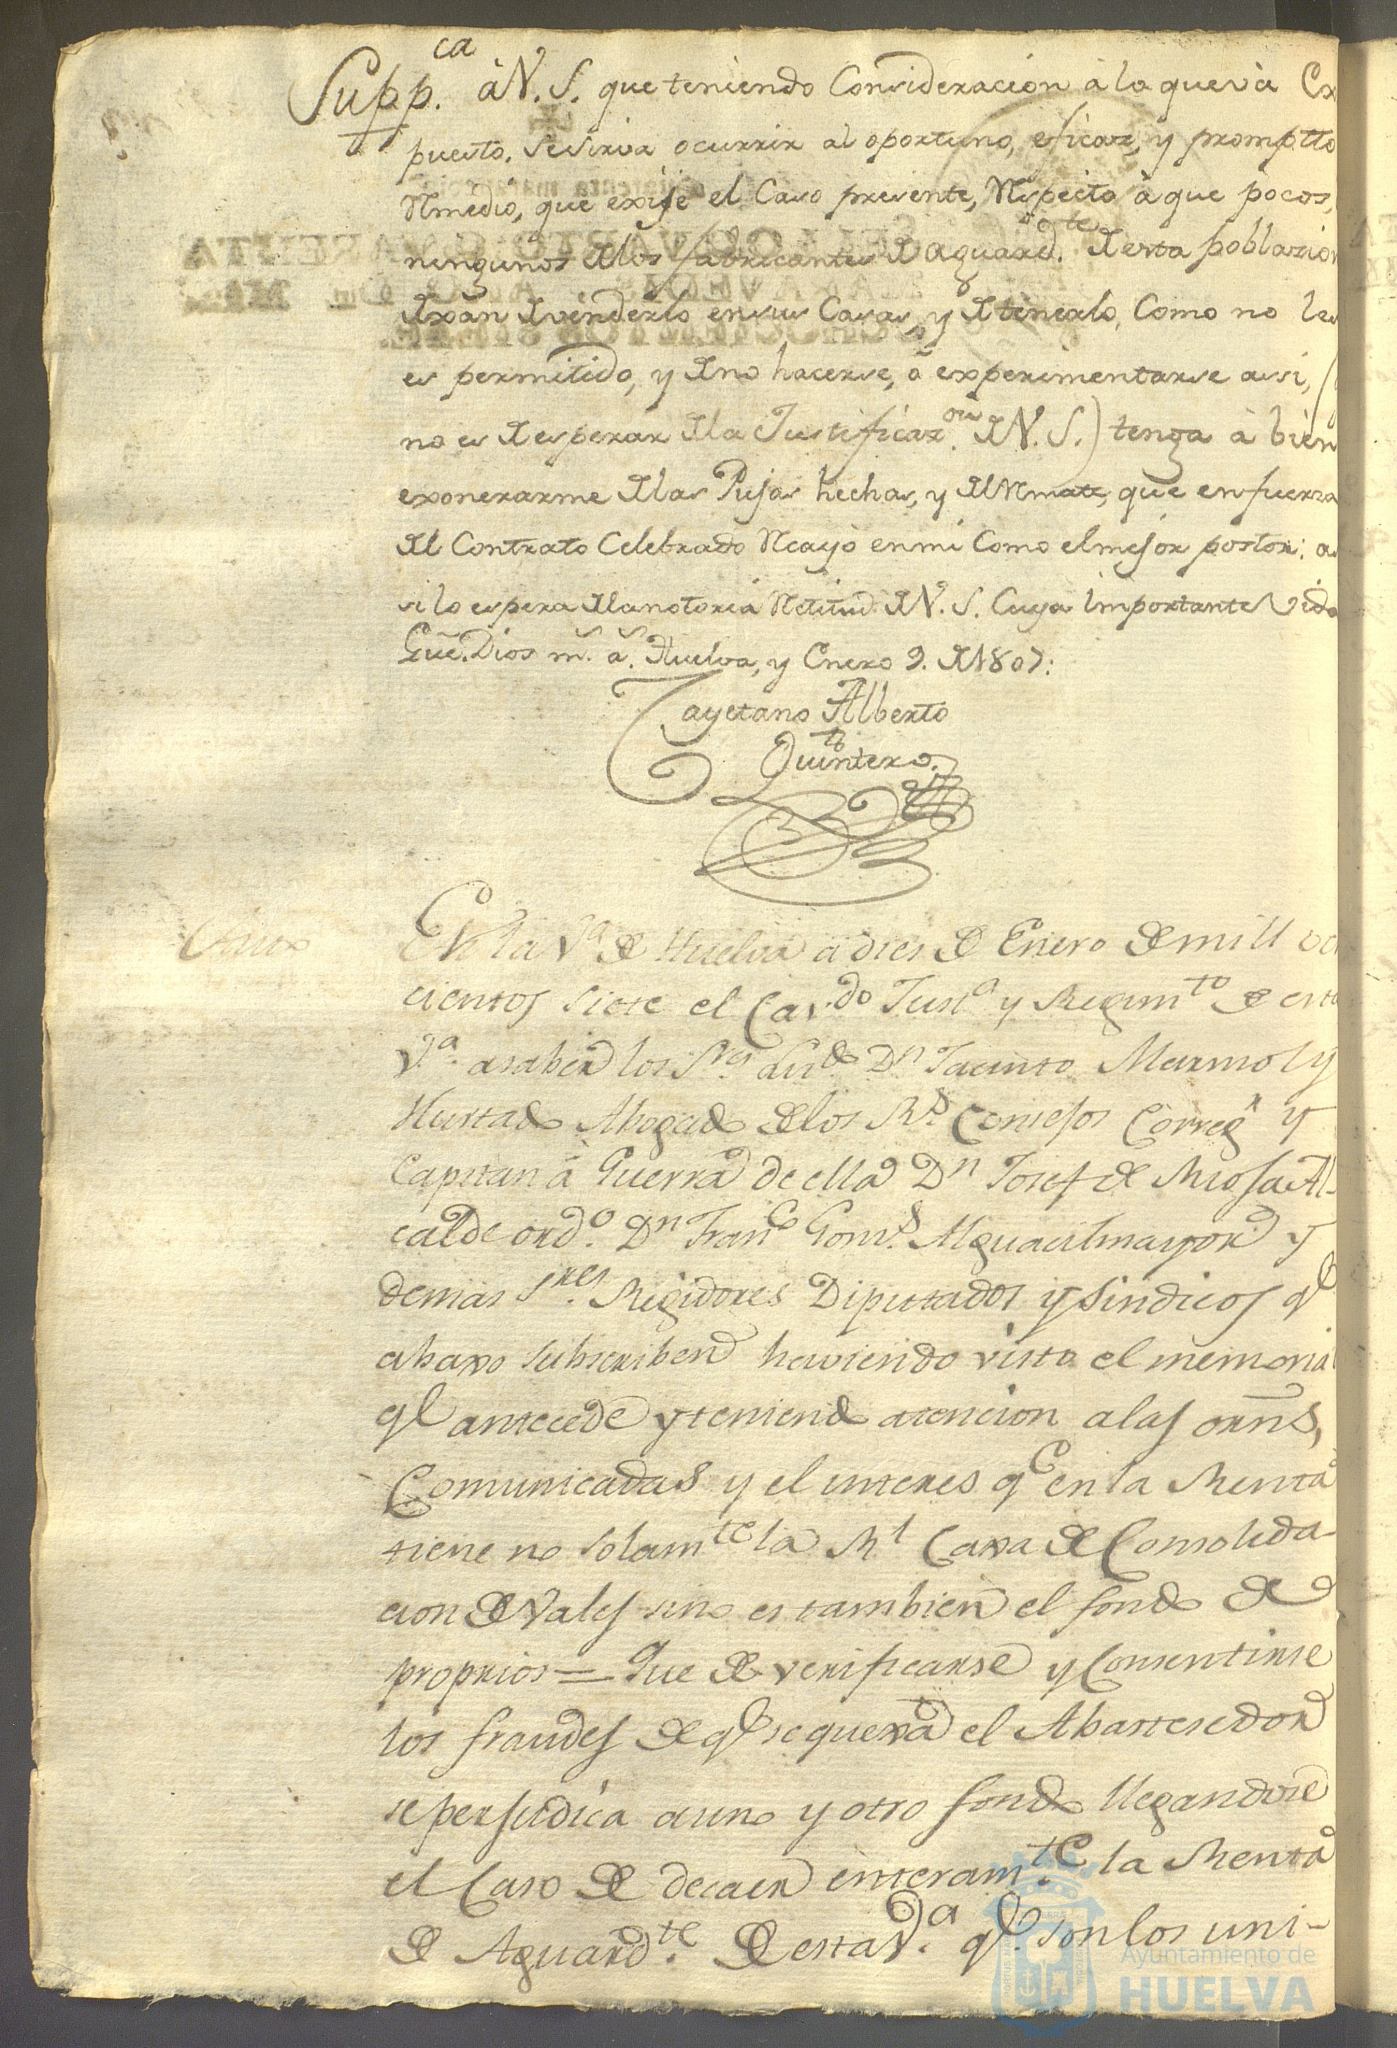 Supp.ca à V. S. que teniendo Consideracion à lo que và Ex
puesto, se sirva ocurrir al oportuno, eficaz, y prompto
Remedio, que exije el Caso presente, Respecto à que pocos,
ò ningunos de los fabricantes de aguard.te de esta poblazion
dexan de venderlo en sus Casas, y de tenerlo, como no les
es permitido, y de no hacerse, ò experimentarse assi, (
no es de esperar de la Justificaz.on de V. S.) tenga à bien
exonerarme de las Pujas hechas, y del Remate, que en fuerza
del Contrato Celebrado Recayò en mi como el mejor postor: a
si lo espera de la notoria Retitud de V. S. Cuya importante vida
Gue. Dios m.s a.s Huelva, y Enero 9. de 1807:
Cayetano Alberto
Quintero.
En la V.a de Huelva a dies de Enero de mill oc
cientos siete el Cav.do Just.a y Regim.to de esta
V.a a saber los S.res Lic.do D.n Jacinto Marmol y
Hurtado Abogado de los R.s Consejos Correg.r y
Capitan à Guerra de ella D.n Josef de Miosa Al-
calde ord.o D.n Fran.co Gom.s Alguacil mayor y
demas S.res Regidores Diputados y Sindicos q.e
abaxo subscriben haviendo visto el memorial
q.e antecede y teniendo atencion a las orns,
Comunicadas y el interes q.e en la Renta
tiene no solam.te la R.l Caxa de Consolida-
cion de Vales sino es tambien el fondo de
proprios = Que de verificarse y Consentirse
los fraudes de q.e se quexa el Abastesedor
se perjudica a uno y otro fondo llegandose
el Caso de decaer enteram.te la Renta
de Aguard.te de esta V.a q.e son los uni-
Ayuntamiento de
HUELVA